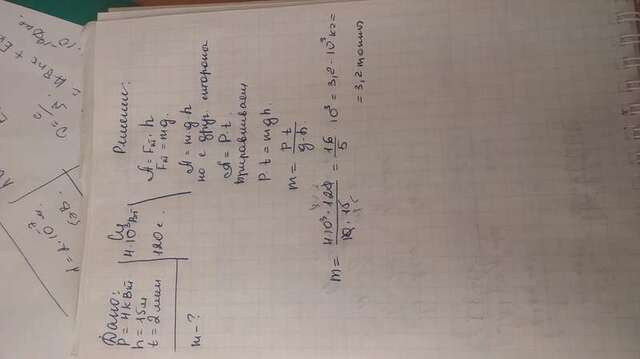 Дано:
P = 4 кВт
h = 15 м
t = 2 мин
m - ?
Си
4·10³ Вт
120 с.
Решение:
A = Fт · h
Fт = mg.
A = m g h
но с друг. стороны
A = P · t.
приравниваем
P t = mgh.
m = P t / g·h
m = 4·10³·120 / 10·15 = 16 / 5 · 10³ = 3,2·10³ кг =
= 3,2 тонны